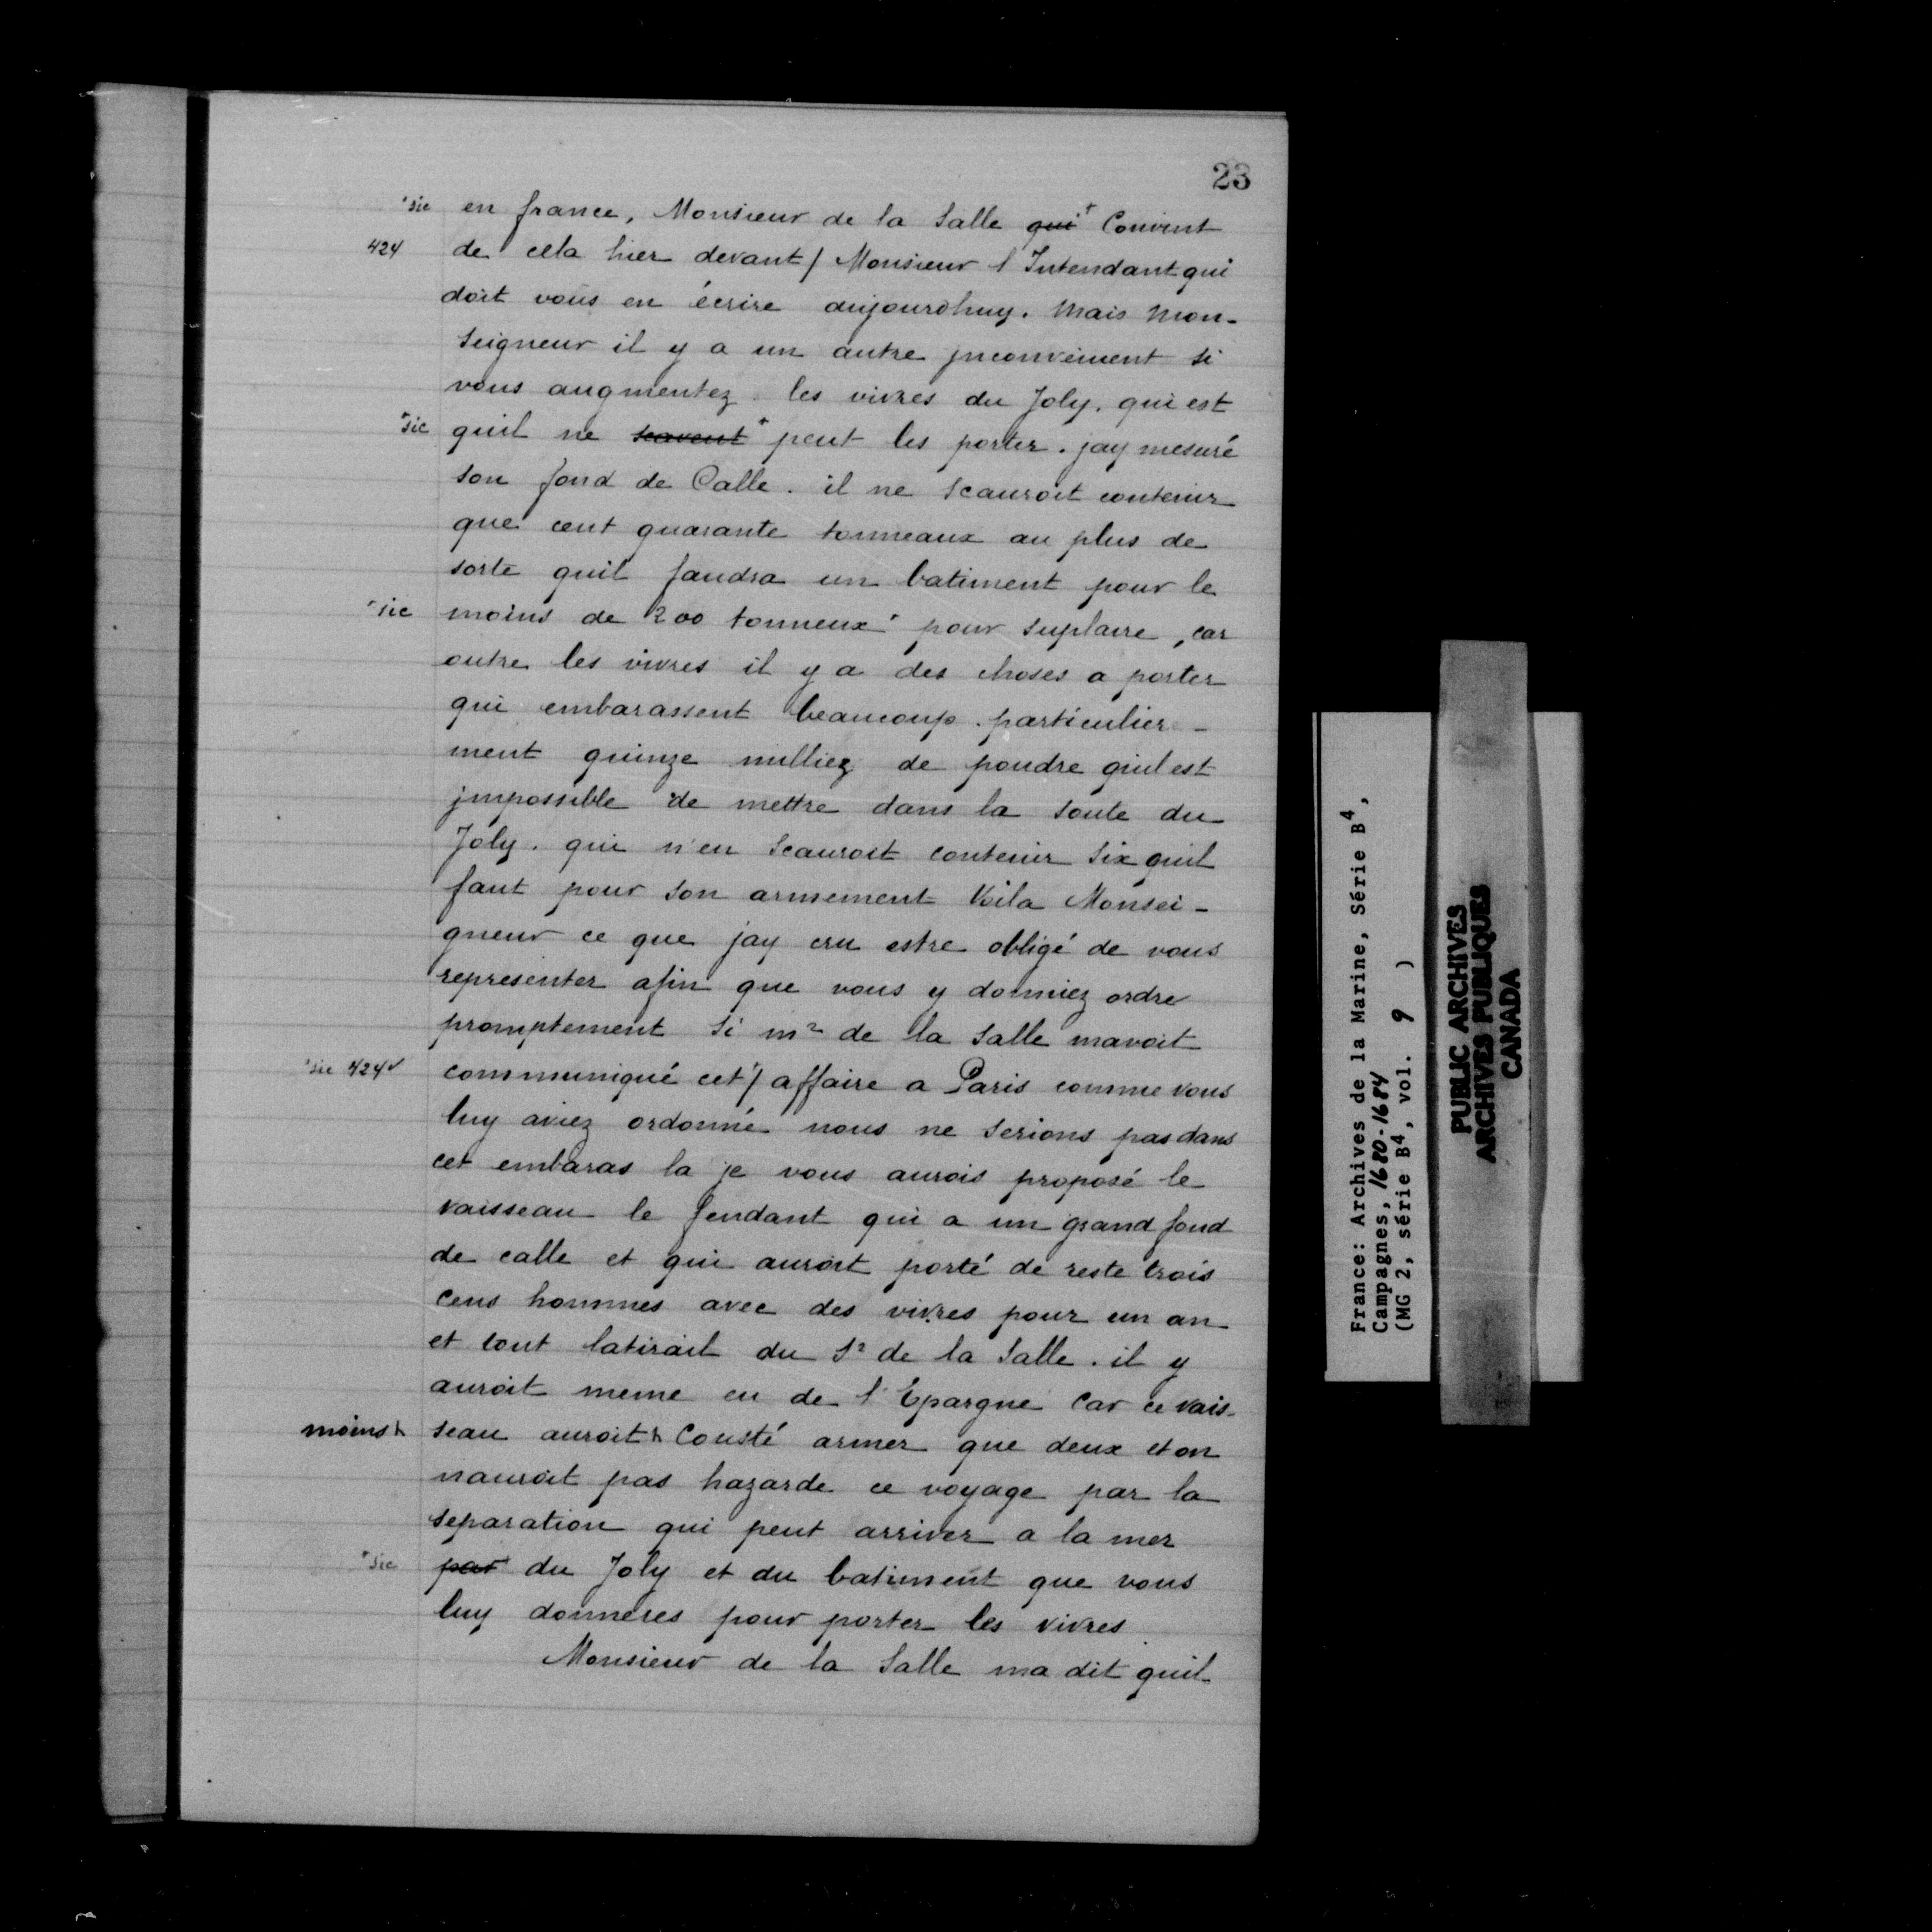 23
+sic en france, Monsieur de la Salle qui+ Convint
424 de cela hier devant / Monsieur l Intendant qui
doit vous en écrire aujourdhuy. Mais Mon-
seigneur il y a un autre jnconvenient si
vous augmentez les vivres du Joly. qui est
+sic quil ne scavent+ peut les porter. jay mesuré
son fond de Calle. il ne scauroit contenir
que cent quarante tonneaux au plus de
sorte quil faudra un batiment pour le
+sic moins de 200 tonneux+ pour suplaire, car
outre les vivres il y a des choses a porter
qui embarassent beaucoup. particulier-
ment quinze milliez de poudre quil est
jmpossible de mettre dans la soute du
Joly. qui n'en scauroit contenir six quil
faut pour son armement Voila Monsei-
gneur ce que jay cru estre obligé de vous
representer afin que vous y donniez ordre
promptement Si mr de la Salle mavoit
+sic 424v communiqué cet+/ affaire a Paris comme vous
luy aviez ordonné nous ne serions pas dans
cet embaras la je vous aurois proposé le
vaisseau le fendant qui a un grand fond
de calle et qui auroit porté de reste trois
cens hommes avec des vivres pour un an
et tout latirail du Sr de la Salle. il y
auroit meme eu de l'Epargne Car ce vais-
moins+ seau auroit+ Cousté armer que deux et on
nauroit pas hazarde ce voyage par la
separation qui peut arriver a la mer
+sic par+ du Joly et du batiment que vous
luy donneres pour porter les vivres
Monsieur de la Salle ma dit quil
France: Archives de la Marine, Série B4,
Campagnes, 1680-1684
(MG 2, série B4, vol. 9 )
PUBLIC ARCHIVES
ARCHIVES PUBLIQUES
CANADA